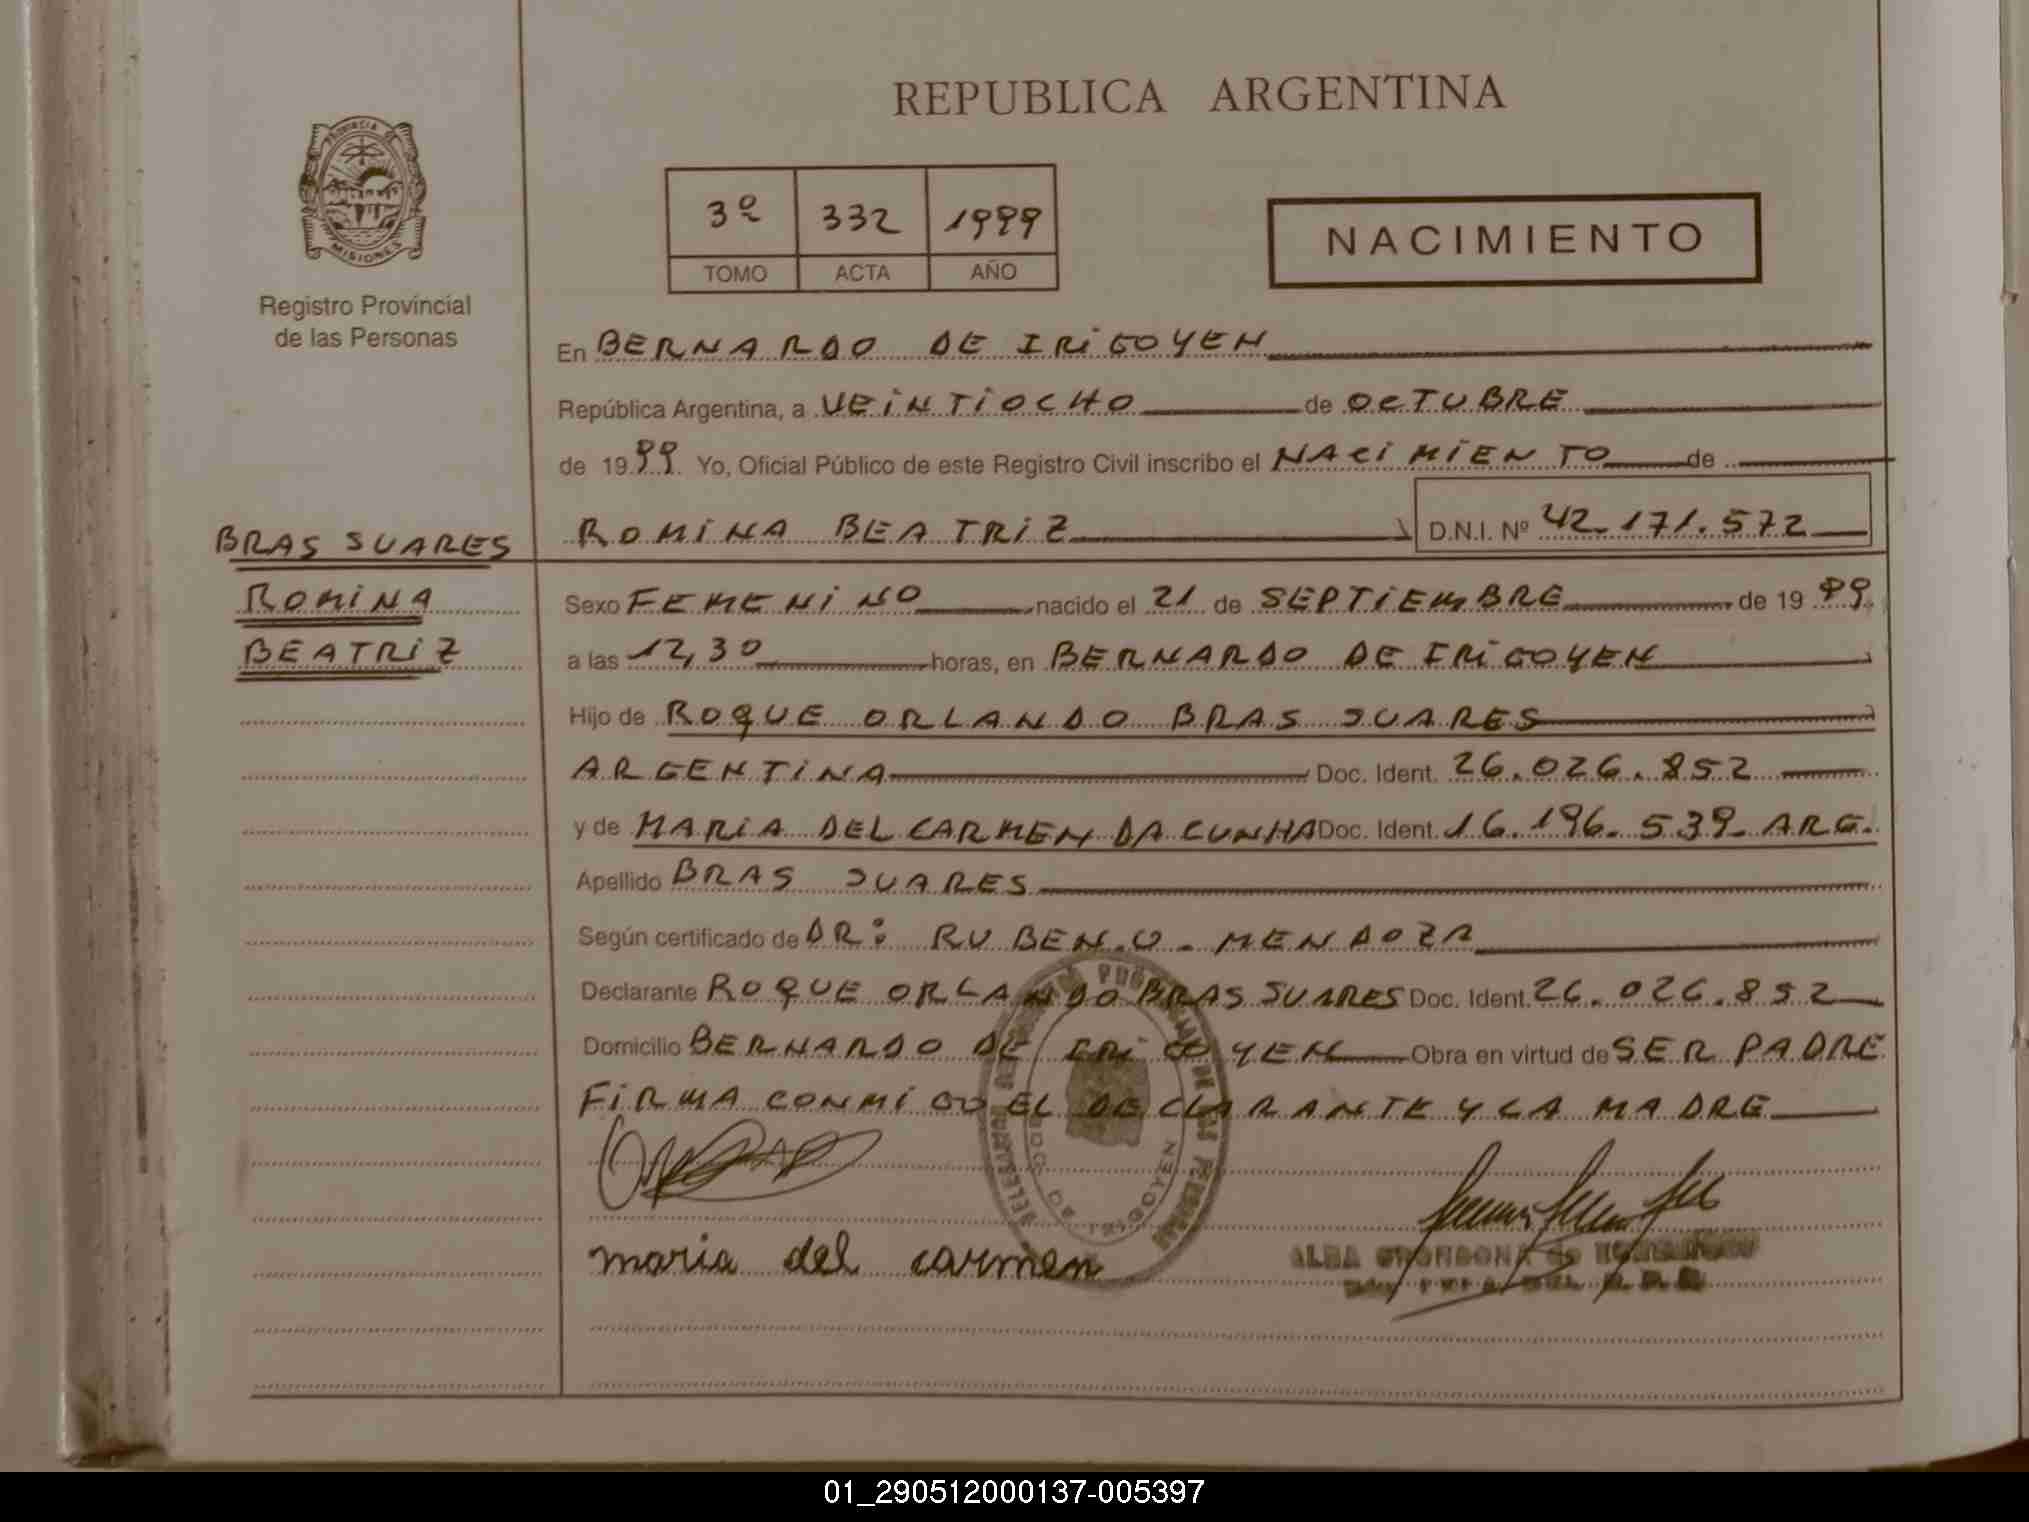 REPUBLICA ARGENTINA
PROVINCIA DE
MISIONES
Registro Provincial
de las Personas
3º 332 1999
TOMO ACTA AÑO
NACIMIENTO
En BERNARDO DE IRIGOYEN
República Argentina, a VEINTIOCHO de OCTUBRE
de 1999. Yo, Oficial Público de este Registro Civil inscribo el NACIMIENTO de
BRAS SUARES
ROMINA
BEATRIZ
ROMINA BEATRIZ D.N.I. Nº 42.171.572
Sexo FEMENINO nacido el 21 de SEPTIEMBRE de 1999
a las 12,30 horas, en BERNARDO DE IRIGOYEN
Hijo de ROQUE ORLANDO BRAS SUARES
ARGENTINA Doc. Ident. 26.026.852
y de MARIA DEL CARMEN DA CUNHA Doc. Ident. 16.196.539 ARG.
Apellido BRAS SUARES
Según certificado de DR: RUBEN.O. MENDOZA
Declarante ROQUE ORLANDO BRAS SUARES Doc. Ident. 26.026.852
Domicilio BERNARDO DE IRIGOYEN Obra en virtud de SER PADRE
FIRMA CONMIGO EL DECLARANTE Y LA MADRE
maria del carmen
ALBA GRONDONA de
01_290512000137-005397